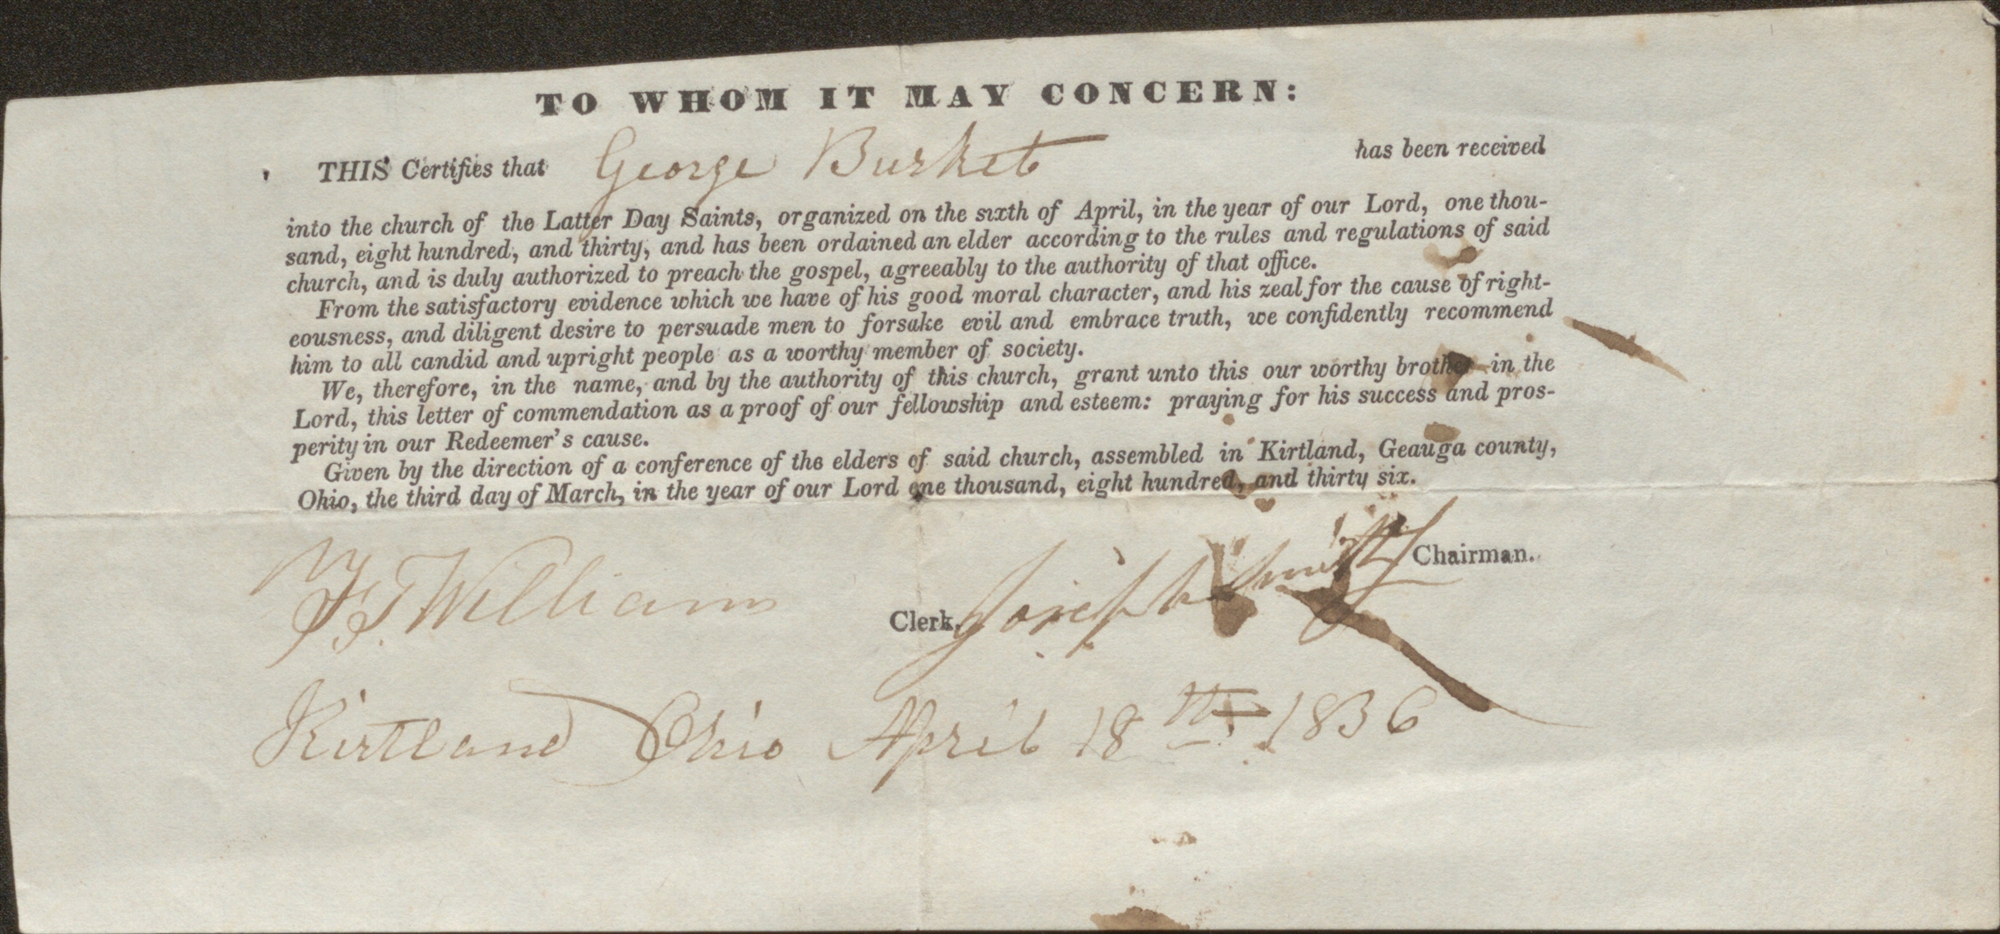 TO WHOM IT MAY CONCERN:
THIS Certifies that George Burket has been received
into the church of the Latter Day Saints, organized on the sixth of April, in the year of our Lord, one thou-
sand, eight hundred, and thirty, and has been ordained an elder according to the rules and regulations of said
church, and is duly authorized to preach the gospel, agreeably to the authority of that office.
From the satisfactory evidence which we have of his good moral character, and his zeal for the cause of right-
eousness, and diligent desire to persuade men to forsake evil and embrace truth, we confidently recommend
him to all candid and upright people as a worthy member of society.
We, therefore, in the name, and by the authority of this church, grant unto this our worthy brother in the
Lord, this letter of commendation as a proof of our fellowship and esteem: praying for his success and pros-
perity in our Redeemer's cause.
Given by the direction of a conference of the elders of said church, assembled in Kirtland, Geauga county,
Ohio, the third day of March, in the year of our Lord one thousand, eight hundred, and thirty six.
Joseph Smith Chairman.
F. G. Williams Clerk,
Kirtland Ohio April 18th 1836